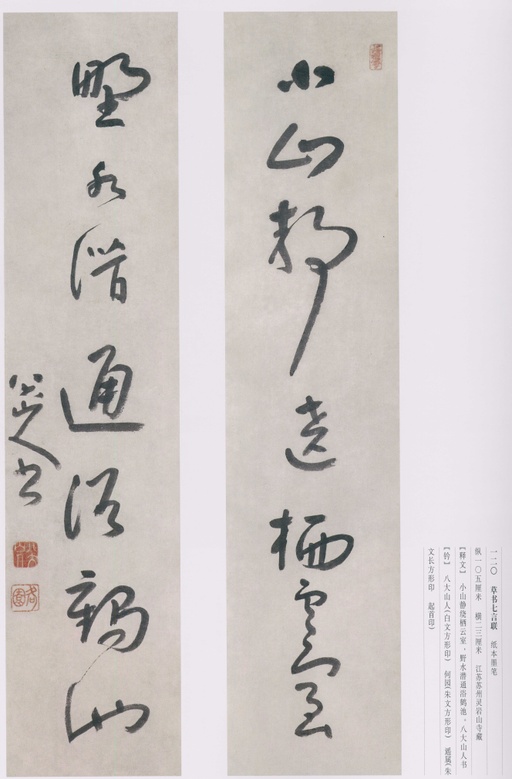 小山静遶栖雲室
野水潛通浴鶴池
八大山人書
一二〇　草书七言联　纸本墨笔
纵一〇五厘米　横二三厘米　江苏苏州灵岩山寺藏
【释文】　小山静绕栖云室，野水潜通浴鹤池。八大山人书
【钤】　八大山人（白文方形印）　何园（朱文方形印）　遥属（朱
文长方形印　起首印）